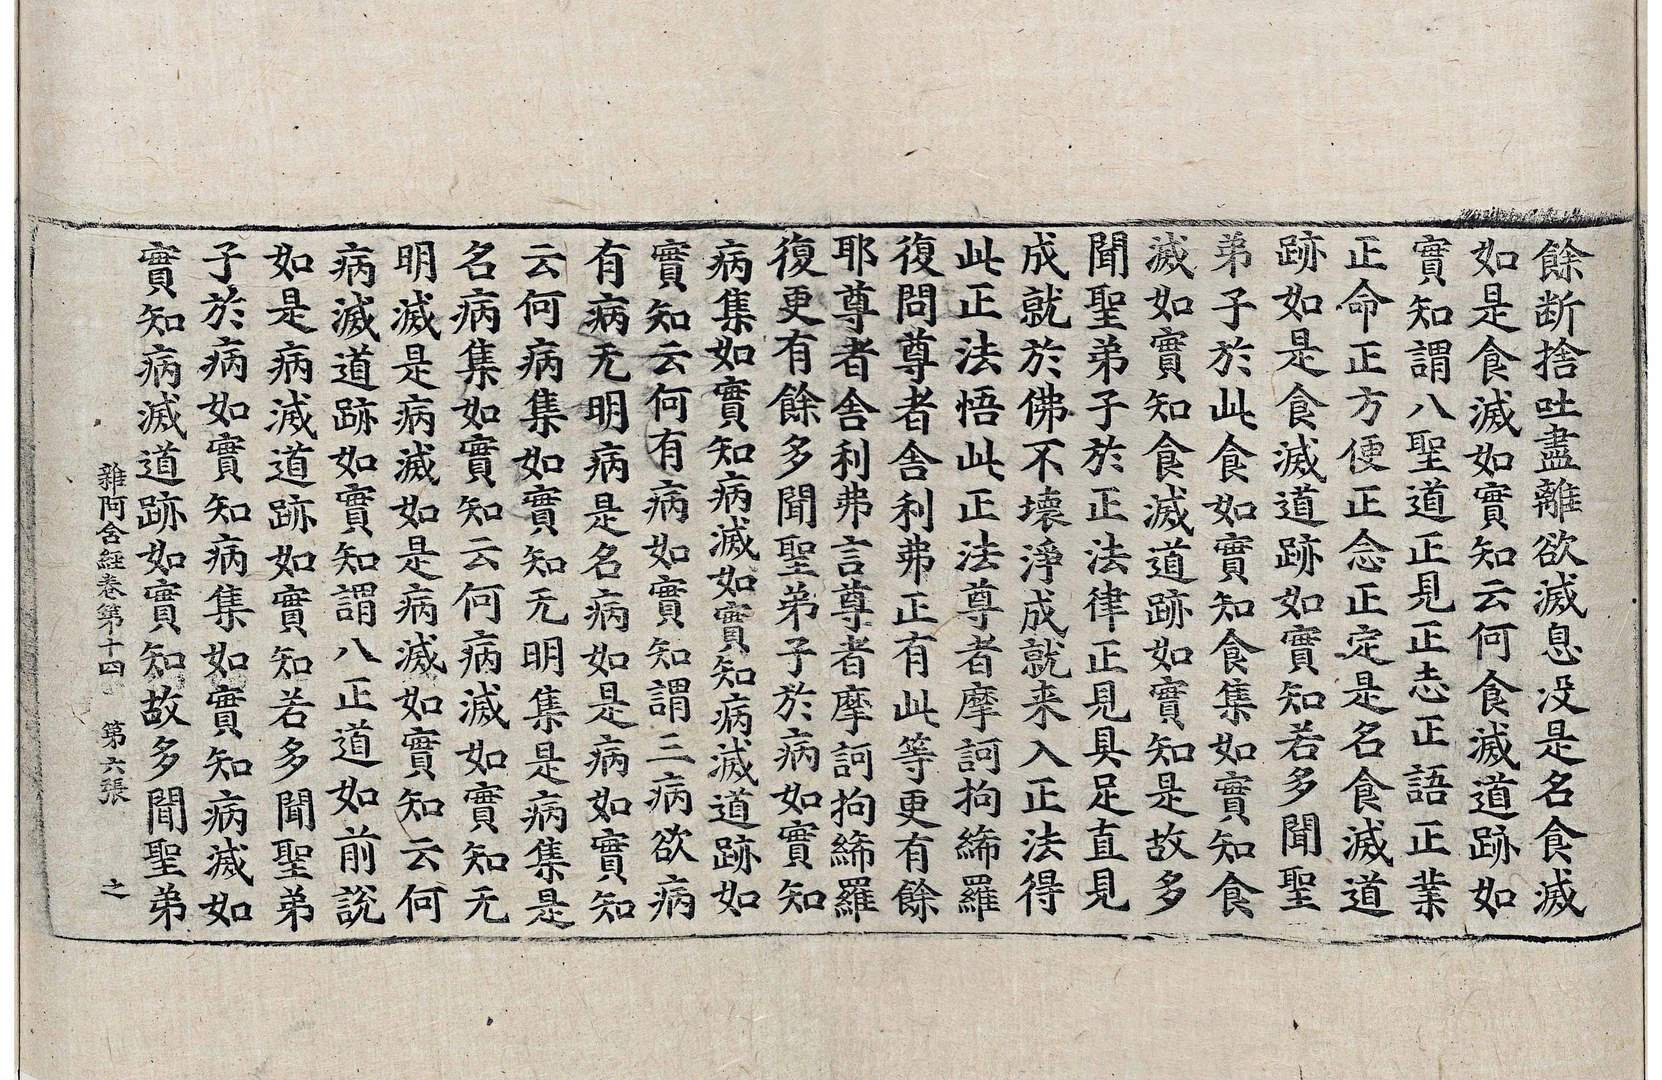 餘断捨吐盡離欲滅息没是名食滅
如是食滅如實知云何食滅道跡如
實知謂八聖道正見正志正語正業
正命正方便正念正定是名食滅道
跡如是食滅道跡如實知若多聞聖
弟子於此食如實知食集如實知食
滅如實知食滅道跡如實知是故多
聞聖弟子於正法律正見具足直見
成就於佛不壞淨成就来入正法得
此正法悟此正法尊者摩訶拘絺羅
復問尊者舎利弗正有此等更有餘
耶尊者舎利弗言尊者摩訶拘絺羅
復更有餘多聞聖弟子於病如實知
病集如實知病滅如實知病滅道跡如
實知云何有病如實知謂三病欲病
有病无明病是名病如是病如實知
云何病集如實知无明集是病集是
名病集如實知云何病滅如實知无
明滅是病滅如是病滅如實知云何
病滅道跡如實知謂八正道如前説
如是病滅道跡如實知若多聞聖弟
子於病如實知病集如實知病滅如
實知病滅道跡如實知故多聞聖弟
雜阿含經卷第十四 第六張 之